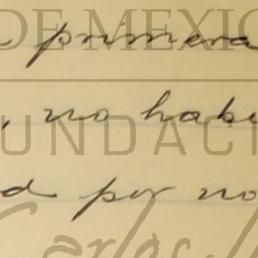 DE MEXIC
primera
, no habi
FUNDACI
d por no
Carlos